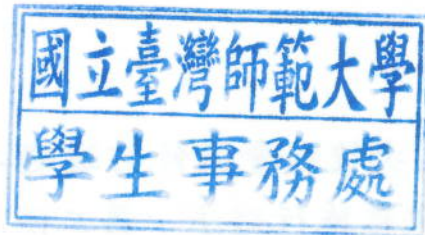 國立臺灣師範大學
學生事務處